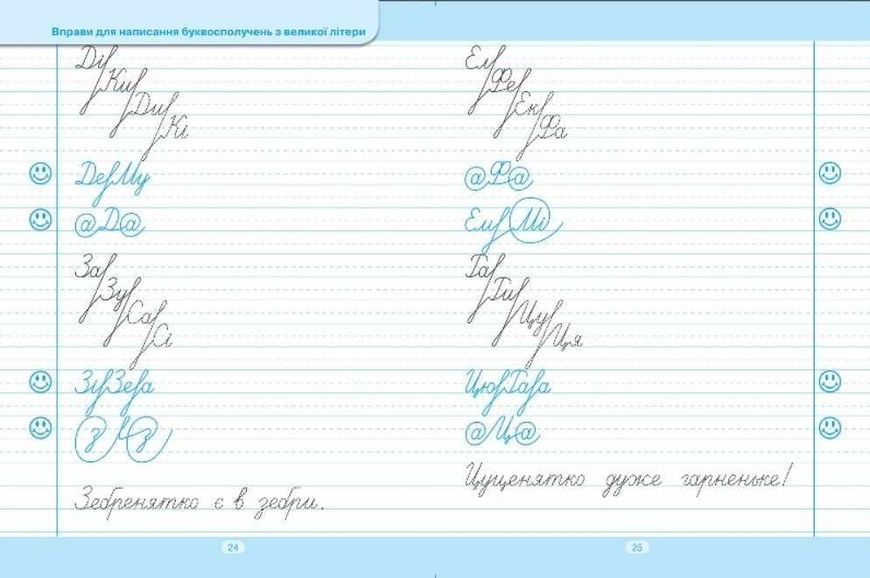 Вправи для написання буквосполучень з великої літери
Ді
Ки
Ди
Кі
Де Му
@ Д @
За
Зу
Са
Сі
Зі Зе а
З З
Зебренятко є в зебри.
24
Ем
Фе
Ен
Фа
@ Ф @
Ем Мі
Га
Ги
Цу
Ця
Цю Га а
@ Ц @
Цуценятко дуже гарненьке!
25